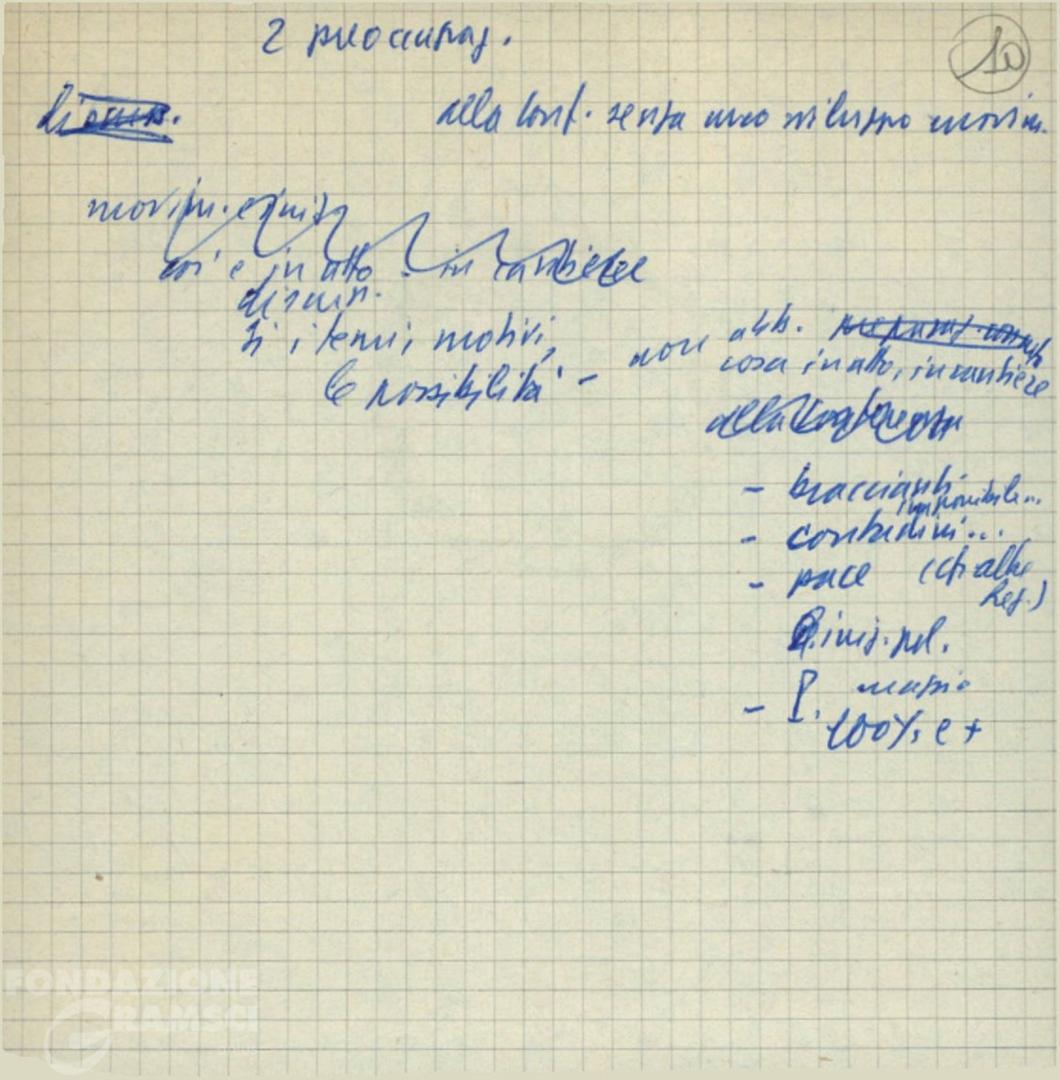 2 preoccupaz.
10
alla Conf. senza uno sviluppo movim.
movim.
così è in atto - in cantiere
discuss.
Si i temi, motivi,
le possibilità -
non abb.
cosa in atto, in cantiere
alla Conferenza
- braccianti
imponibile...
- contadini...
- pace (ch. altre
Reg.)
iniz. pol.
- P.
100% e +
FONDAZIONE
GRAMSCI